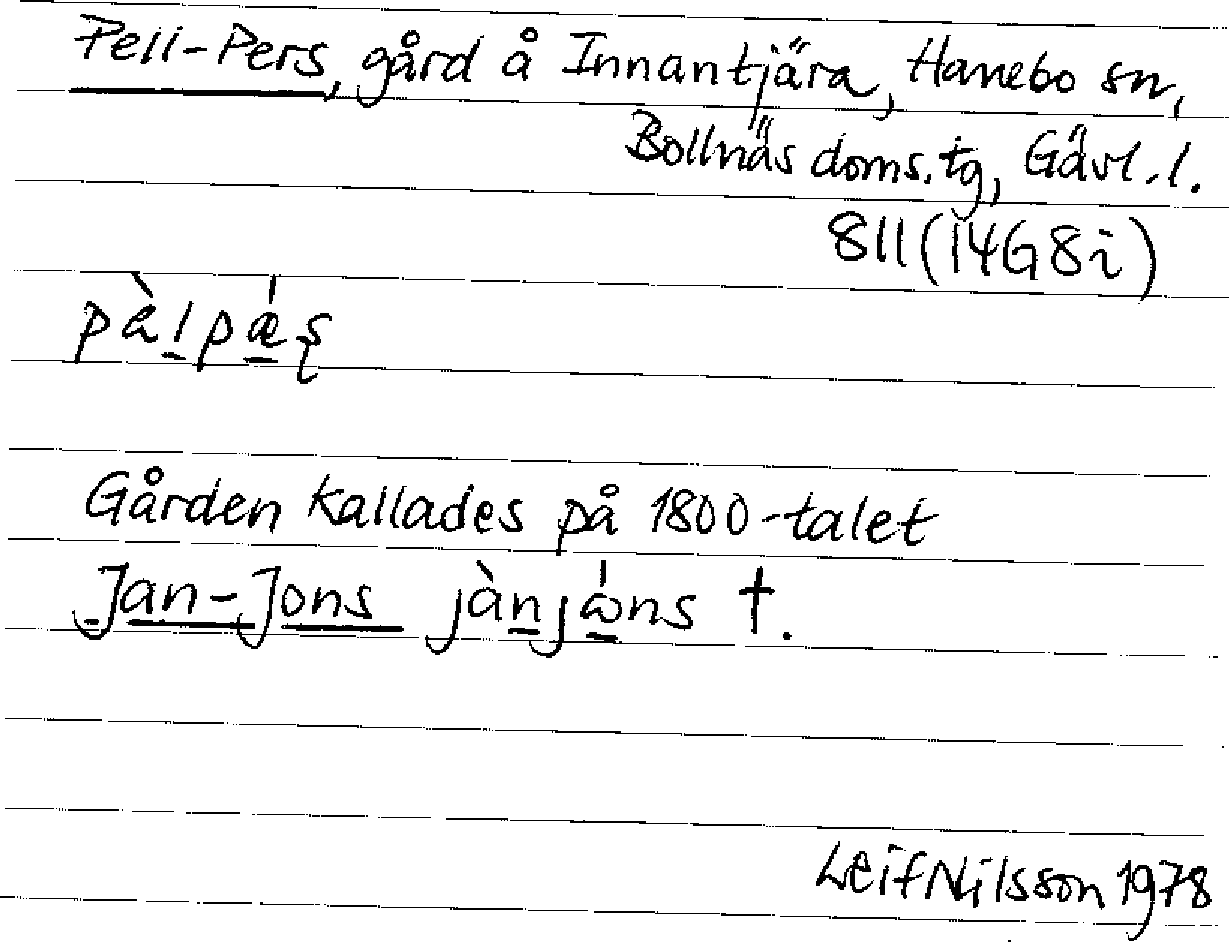 Pell-Pers, gård å Innantjära, Hanebo sn,
Bollnäs doms.tg, Gävl.l.
811 (14G8i)
pὲl̠pǽ̠ʂ
Gården kallades på 1800-talet
Jan-Jons jàn̠jώ̠ns †.
Leif Nilsson 1978